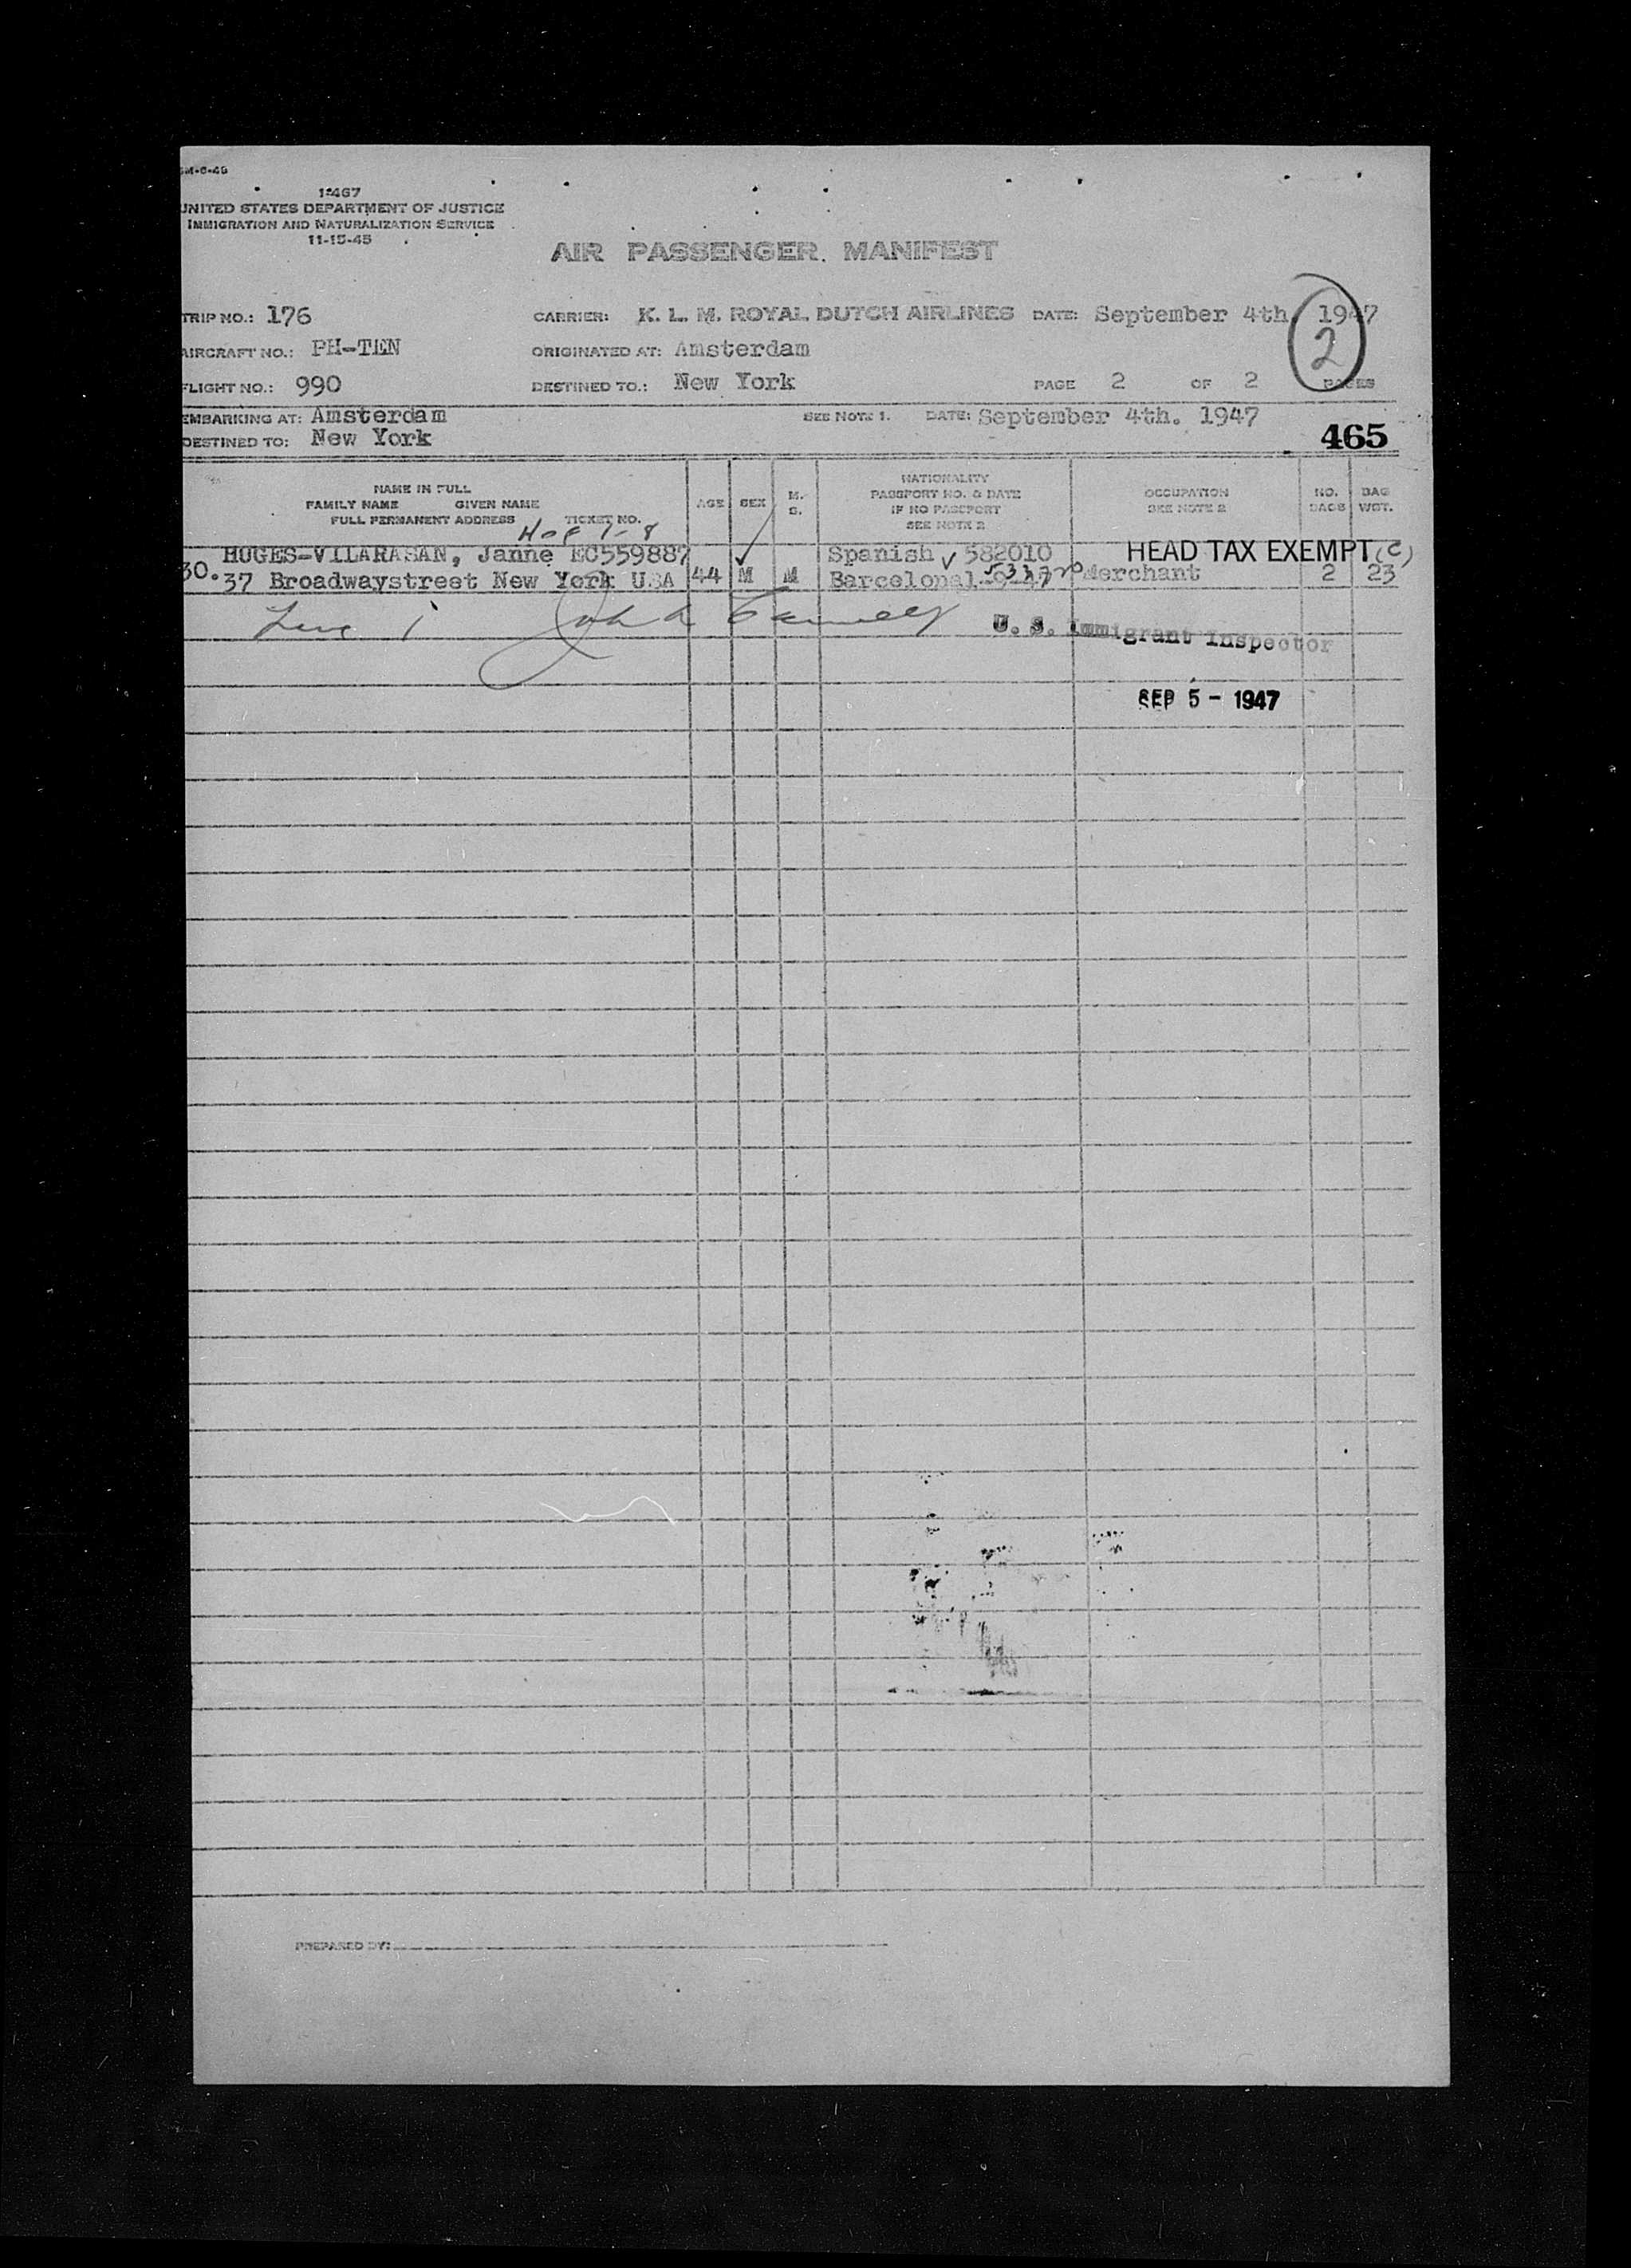 5M-6-46
I-467
UNITED STATES DEPARTMENT OF JUSTICE
IMMIGRATION AND NATURALIZATION SERVICE
11-15-45
AIR PASSENGER MANIFEST
TRIP NO.: 176 CARRIER: K. L. M. ROYAL DUTCH AIRLINES DATE: September 4th. 1947
2
AIRCRAFT NO.: PH-TEN ORIGINATED AT: Amsterdam
FLIGHT NO.: 990 DESTINED TO.: New York PAGE 2 OF 2 PAGES
EMBARKING AT: Amsterdam SEE NOTE 1. DATE: September 4th. 1947
DESTINED TO: New York 465
NAME IN FULL
FAMILY NAME GIVEN NAME
FULL PERMANENT ADDRESS TICKET NO.
AGE SEX M. S.
NATIONALITY
PASSPORT NO. & DATE
IF NO PASSPORT
SEE NOTE 2
OCCUPATION
SEE NOTE 2
NO. BAGS
BAG WGT.
HUGES-VILARASAN, Janne EC559887 Spanish 582010 HEAD TAX EXEMPT (C)
30. 37 Broadwaystreet New York USA 44 M M Barcelona Merchant 2 23
Line 1 John
U. S. Immigrant Inspector
SEP 5 - 1947
PREPARED BY: